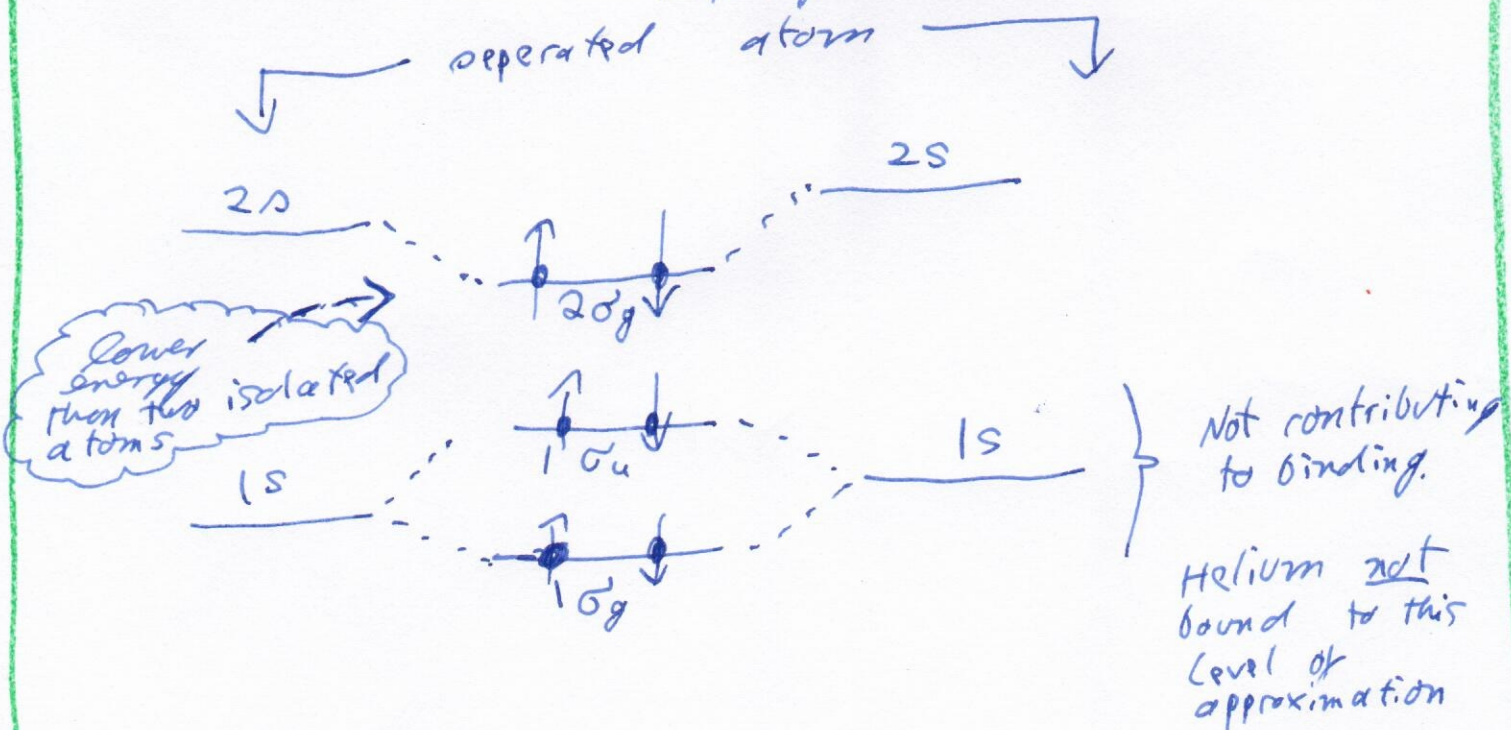 seperated atom
2s
2s
2σg
lower
energy
than two isolated
atoms
1σu
1s
1s
1σg
Not contributing
to binding.
Helium not
bound to this
level of
approximation